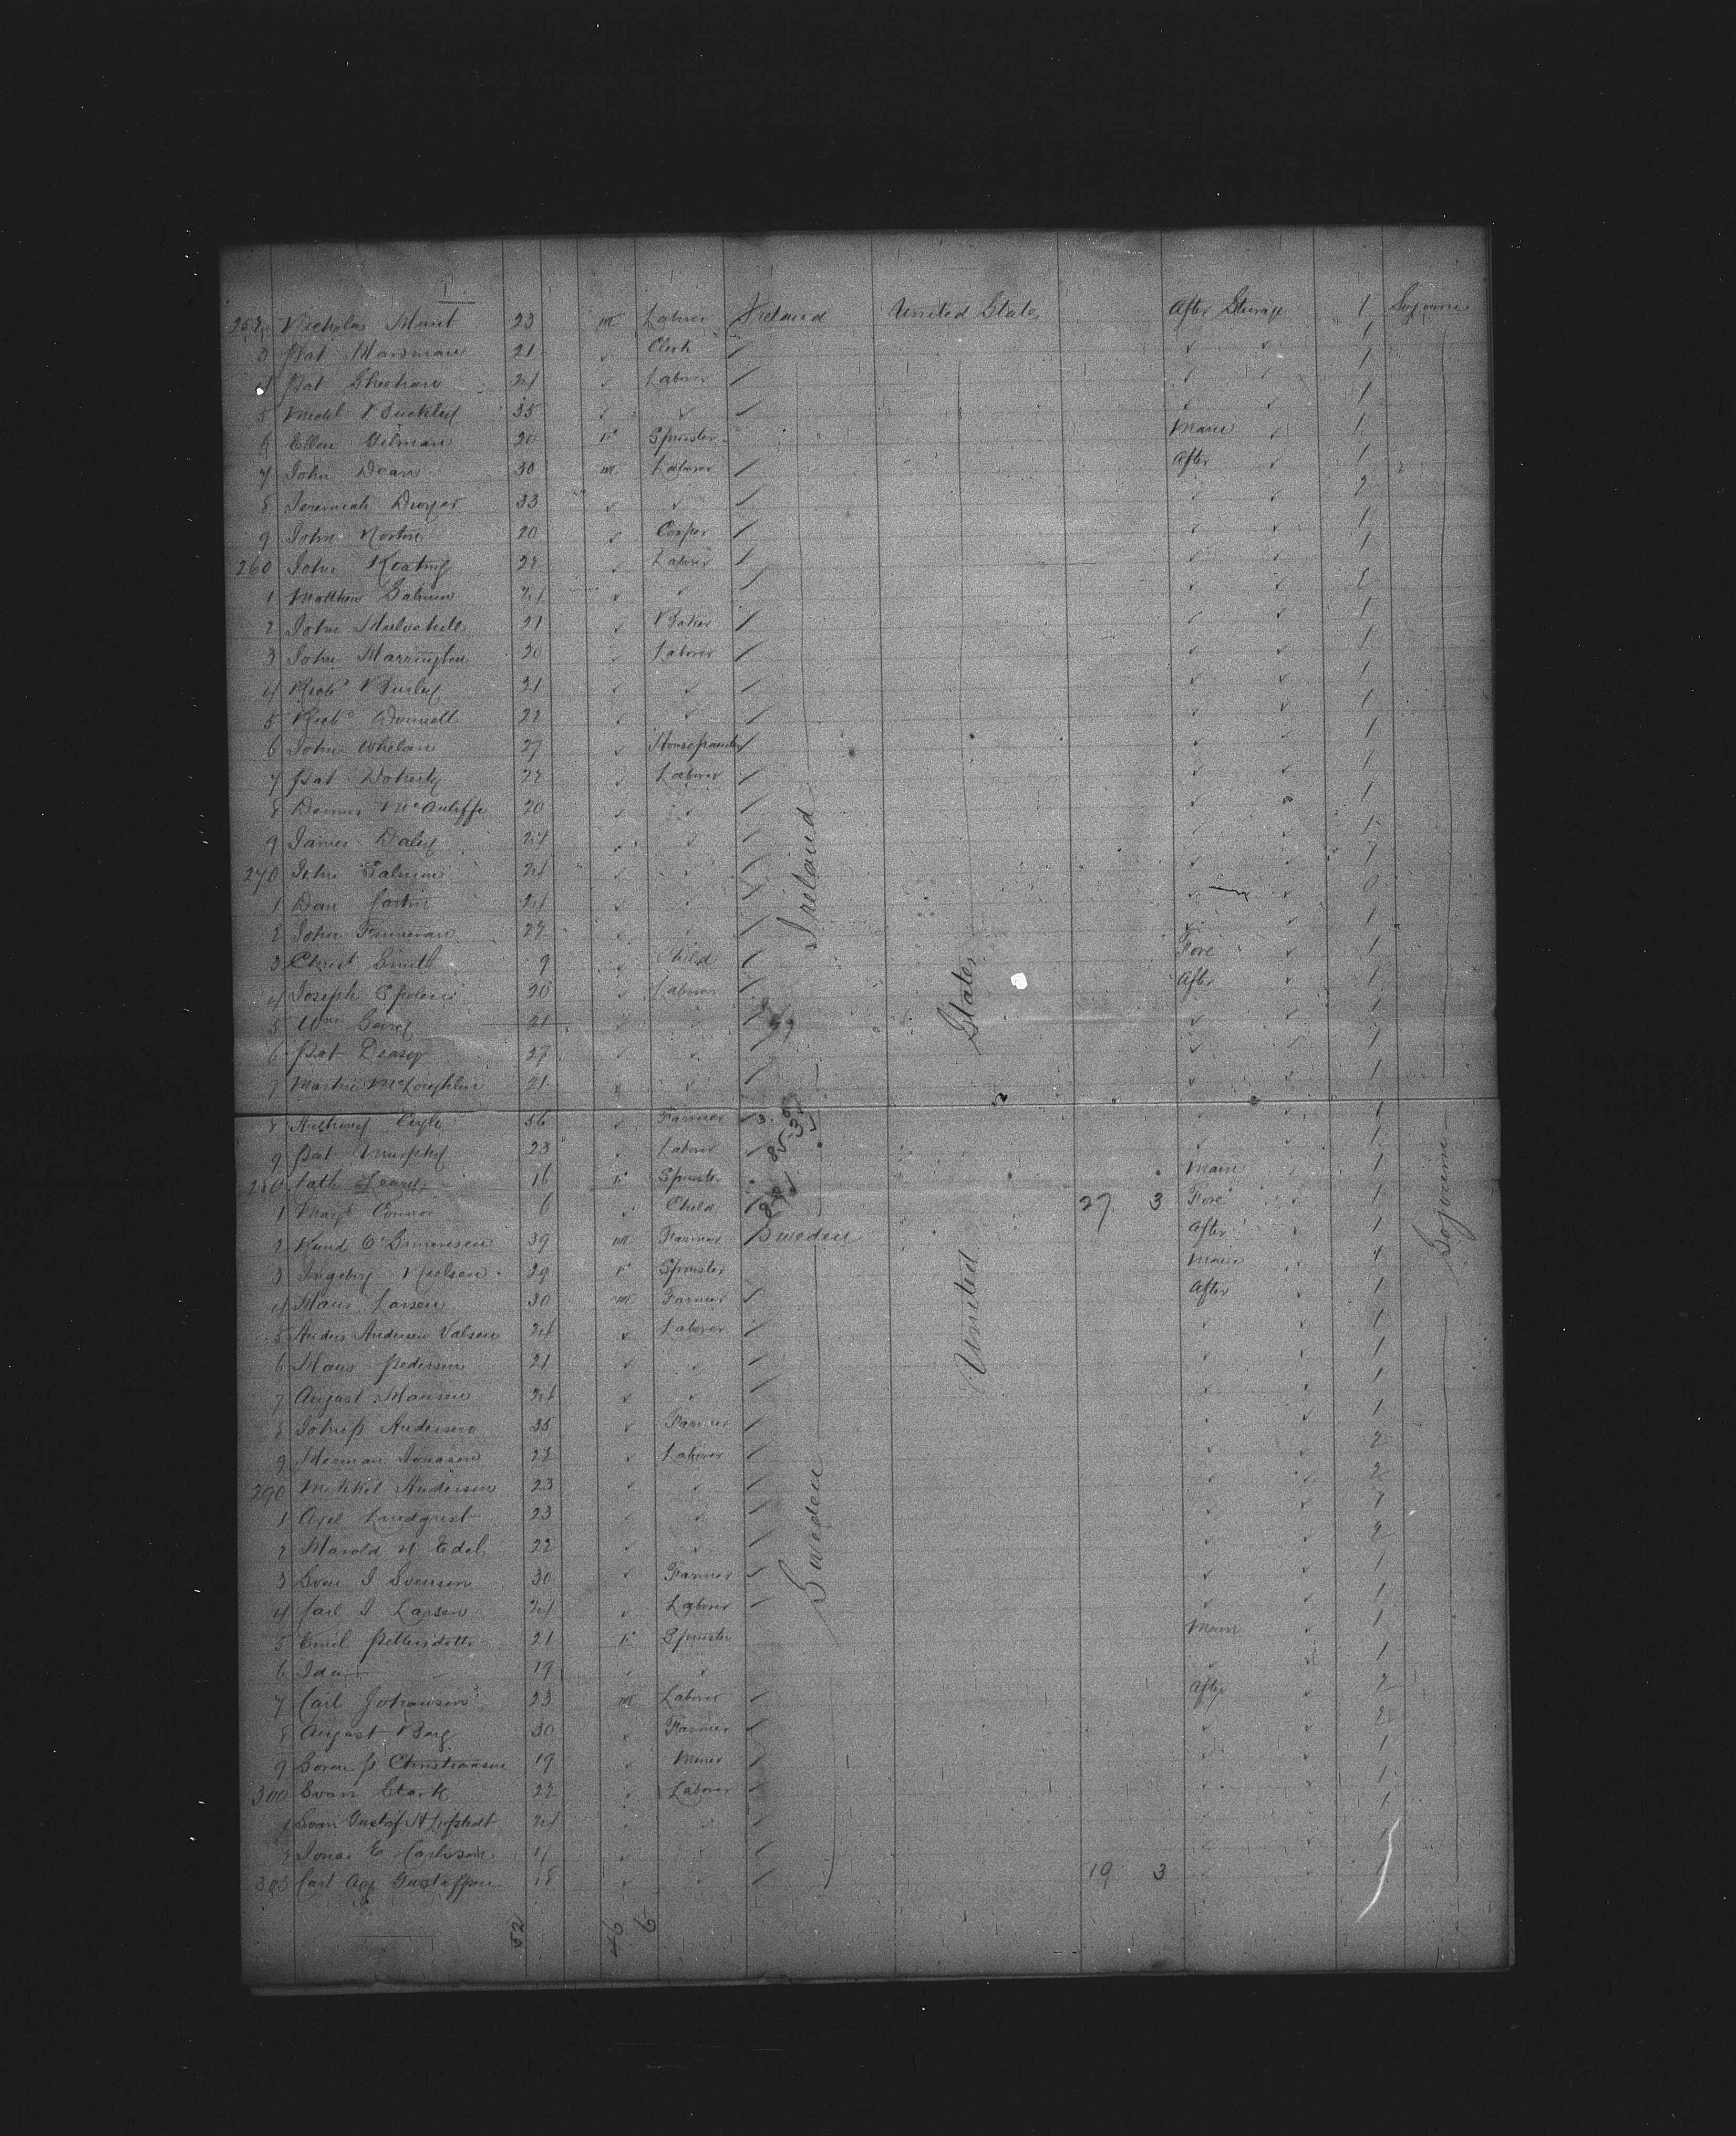 252 Nicholas Hunt 23 m Laborer Ireland United States After Steerage 1 Sojourner
3 Pat 21 ✓ Clerk ✓ ✓ 1
4 Pat Sheehan 24 ✓ Laborer ✓ ✓ 1
5 Michl Buckley 35 ✓ ✓ ✓ ✓ 1
6 Ellen Gilman 20 F Spinster Main ✓ 1
7 John Dean 30 m Laborer After ✓ 1
8 Jeremiah Dwyer 33 ✓ ✓ ✓ ✓ 2
9 John Norton 20 ✓ Cooper ✓ ✓ 1
260 John Keating 22 ✓ Laborer ✓ ✓ 1
1 Matthew Salmon 24 ✓ ✓ ✓ ✓ 2
2 John Mulvahill 21 ✓ Baker ✓ ✓ 1
3 John Harrington 20 ✓ Laborer ✓ ✓ 1
4 Richd 21 ✓ ✓ ✓ ✓ 1
5 Richd 22 ✓ ✓ ✓ ✓ 1
6 John Whelan 27 ✓ Housepainter ✓ ✓ 1
7 Pat Doherty 22 ✓ Laborer ✓ ✓ 1
8 McAuliffe 20 ✓ ✓ ✓ 1
9 James Daley 24 ✓ ✓ ✓ ✓ 1
270 John Salmon 24 ✓ ✓ ✓ ✓ 1
1 Dan 24 ✓ ✓ ✓ ✓ 0
2 John 22 ✓ ✓ ✓ ✓ 1
3 Christ Smith 9 ✓ Child Fore ✓ 1
4 Joseph 20 ✓ Laborer After ✓ 1
5 Wm 21 ✓ ✓ ✓ ✓ 1
6 Pat Deasy 27 ✓ ✓ ✓ ✓ 1
7 Martin McLoughlin 21 ✓ ✓ ✓ ✓ 1
8 Anthony 56 ✓ Farmer ✓ ✓ 1
9 Pat Murphy 23 ✓ Laborer ✓ ✓ 1
280 Cath Leary 16 F Spinster Main 1
1 Margt Connor 6 ✓ Child 27 3 Fore 1
2 39 m Farmer Sweden After ✓ 1
3 Ingeborg Nielsen 29 F Spinster Main 1
4 Hans Larsen 30 m Farmer After ✓ 1
5 Anders Andersen 24 ✓ Laborer ✓ ✓ 1
6 Hans Pedersen 21 ✓ ✓ ✓ ✓ 1
7 August Hansen 24 ✓ ✓ ✓ ✓ 1
8 Andersen 35 ✓ Farmer ✓ ✓ 1
9 Herman Jonasson 22 ✓ Laborer ✓ ✓ 2
290 Mikkel Andersen 23 ✓ ✓ ✓ ✓ 2
1 Axel Lindqvist 23 ✓ ✓ ✓ ✓ 1
2 Harold 22 ✓ ✓ ✓ ✓ 2
3 Sven J Svensen 30 ✓ Farmer ✓ ✓ 1
4 Carl J Larsen 24 ✓ Laborer ✓ ✓ 1
5 Emil 21 F Spinster Main ✓ 1
6 Ida 19 ✓ ✓ ✓ ✓ 1
7 Carl Johansen 23 m Laborer After ✓ 2
8 August Berg 30 ✓ Farmer ✓ ✓ 2
9 Soren P. Christiansen 19 ✓ Miner ✓ ✓ 1
300 Svan Stark 22 ✓ Laborer ✓ ✓ 1
1 Svan Gustaf 24 ✓ ✓ ✓ ✓ 1
2 Jonas E Carlsson 17 ✓ ✓ ✓ ✓ 1
303 Carl Aug Gustaffsen 18 ✓ ✓ 19 3 ✓ ✓ 1
Ireland
United States
Sweden
Sojourner
52
46
6